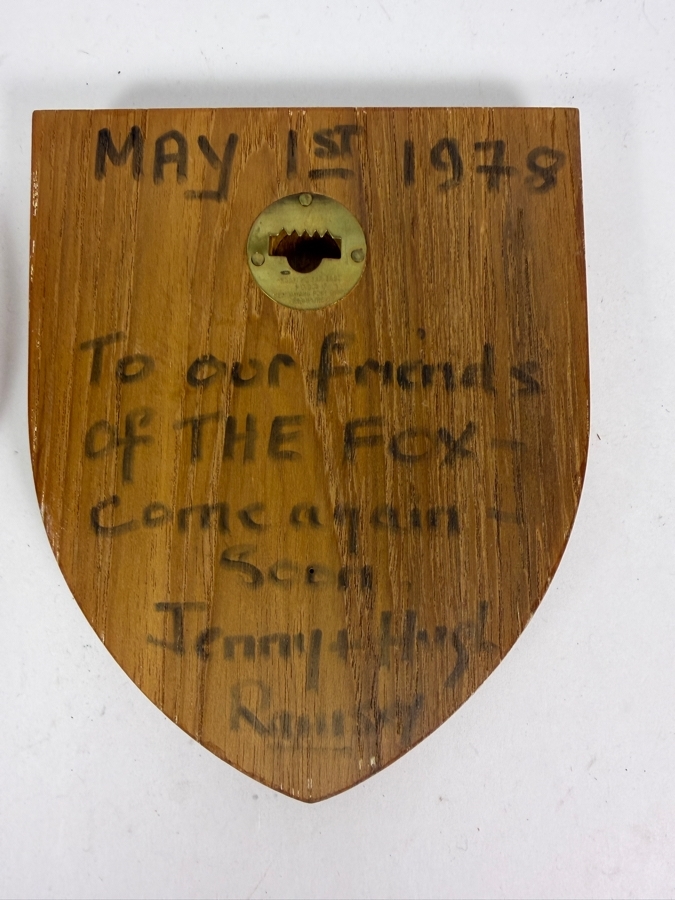 MAY 1ST 1978
To our friends
of THE FOX -
come again -
Soon
Jenny + Hugh
Ramsay